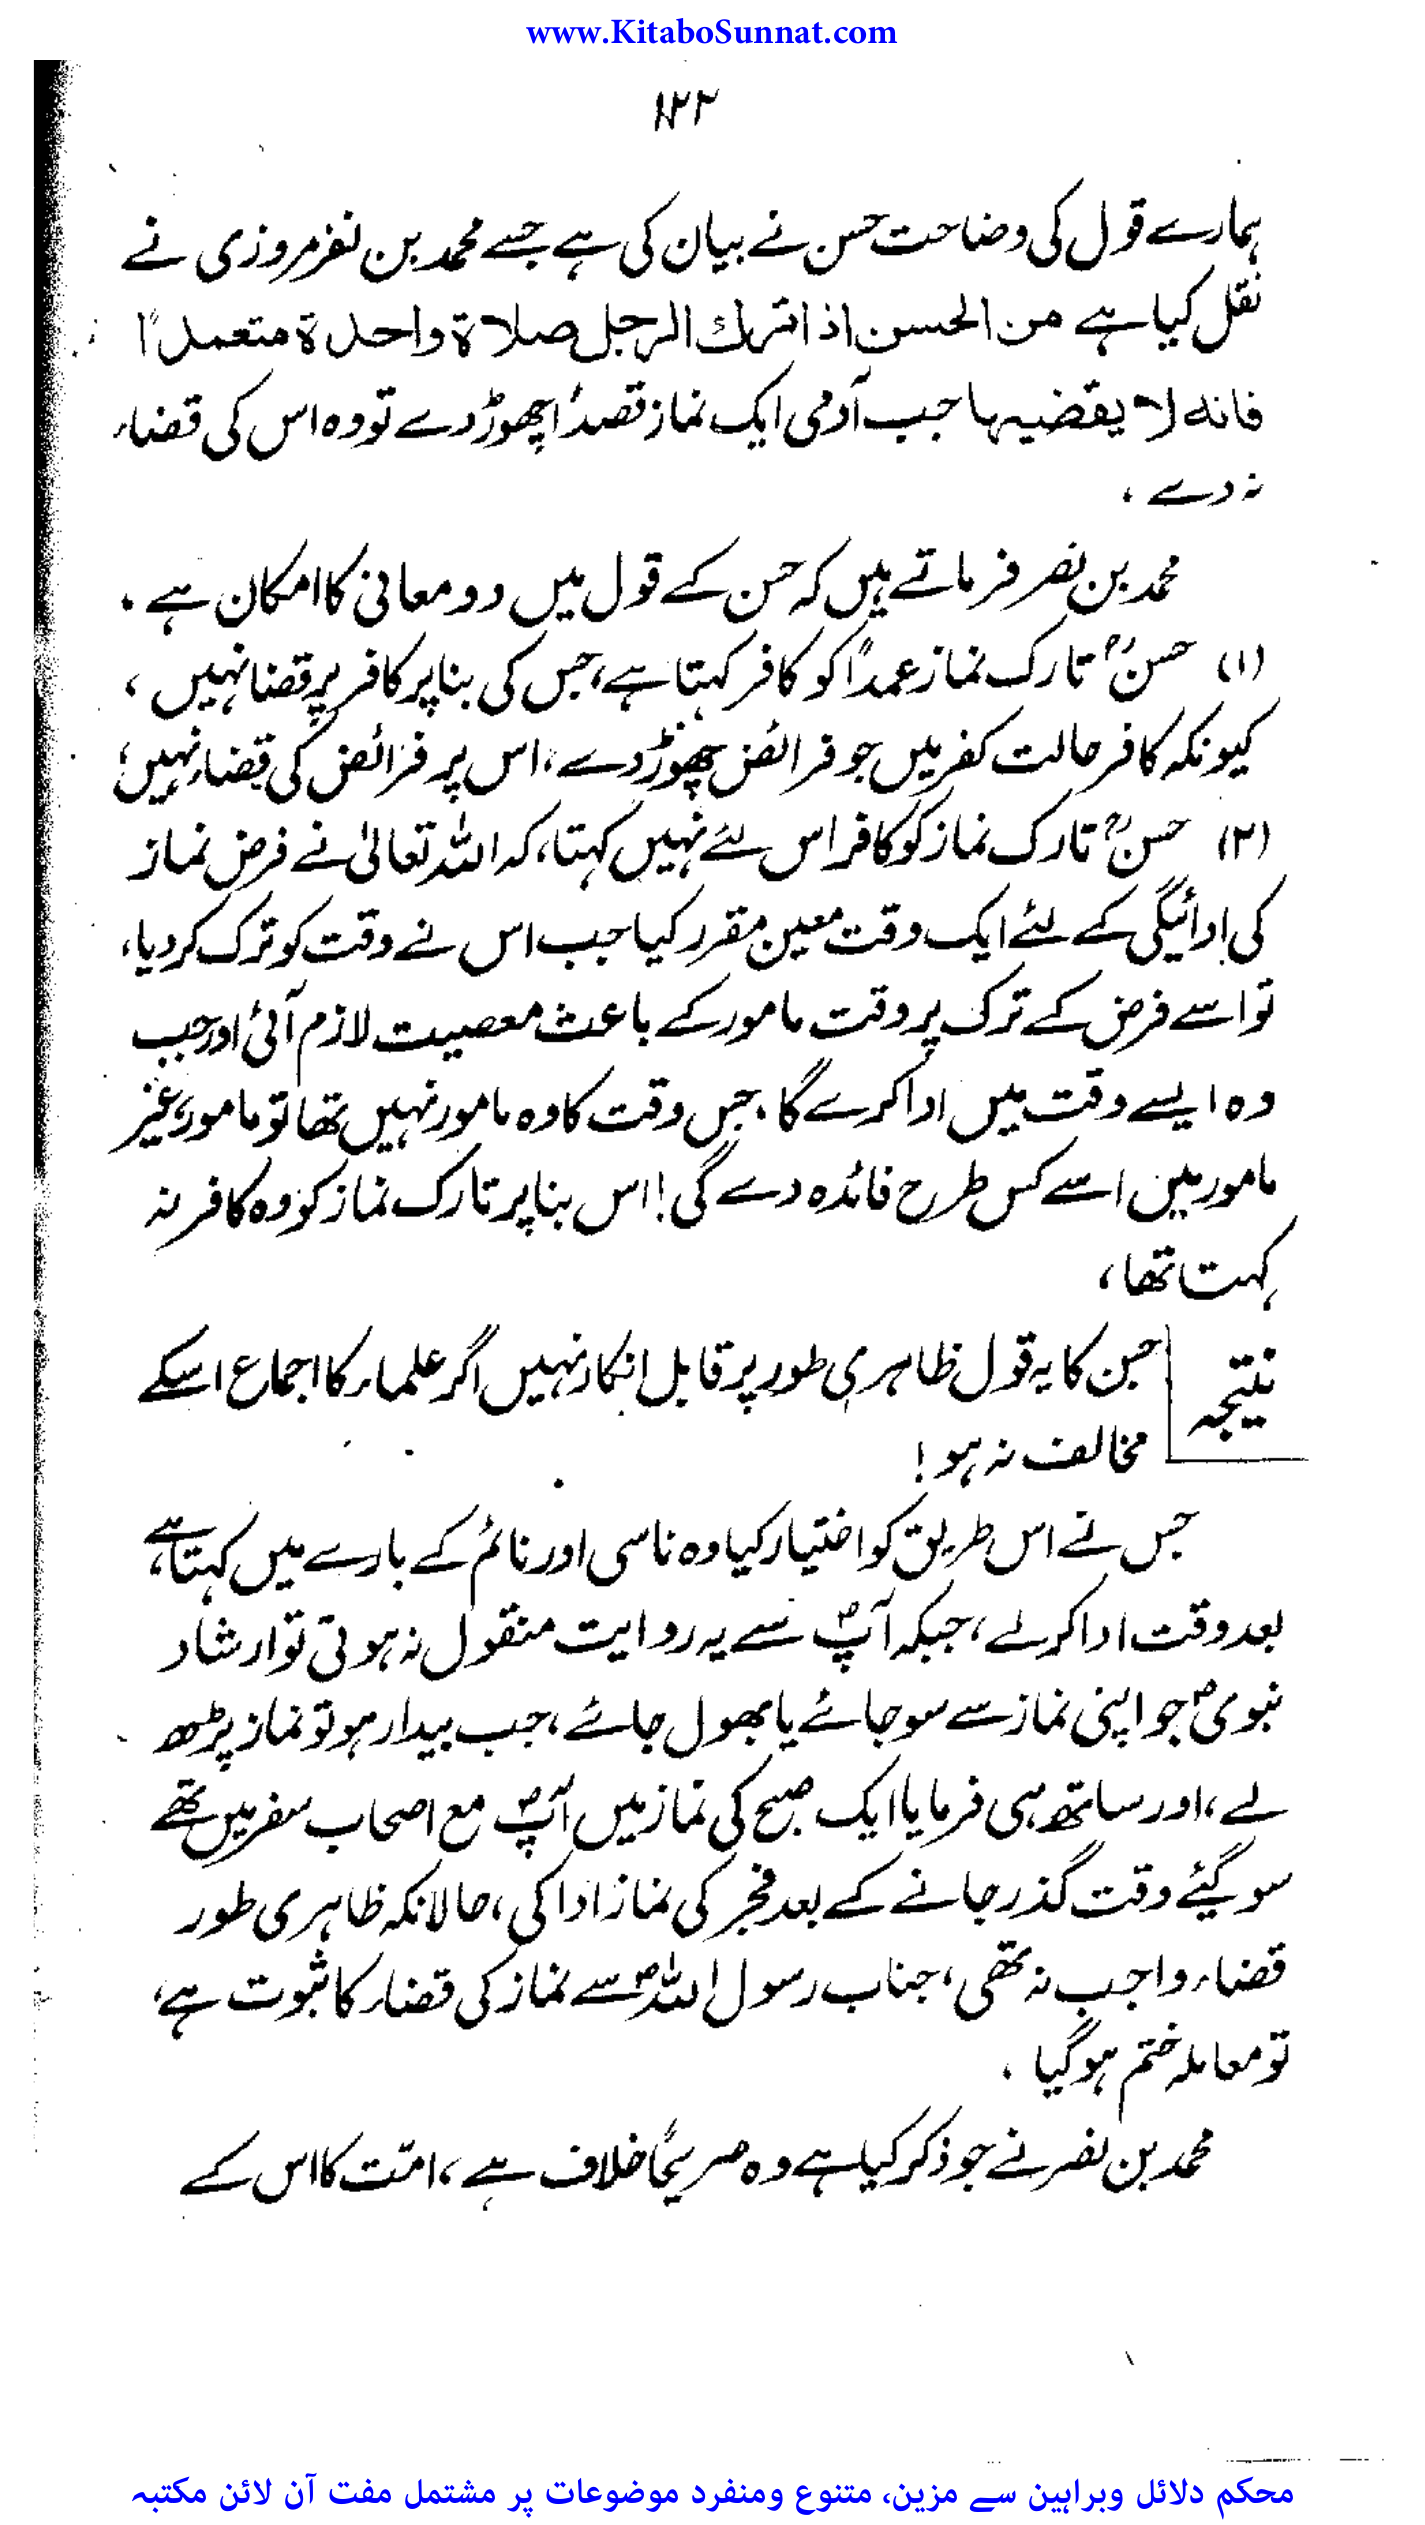 www.KitaboSunnat.com
۱۲۲
ہمارے قول کی وضاحت حسن نے بیان کی ہے جسے محمد بن نفر مروزی نے
نقل کیا ہے من الحسن اذا ترك الرجل صلاة واحدة متعمدًا
فانه لا يقضيها جب آدمی ایک نماز قصدًا چھوڑ دے تو وہ اس کی قضاء
نہ دے ،
محمد بن نصر فرماتے ہیں کہ حسن کے قول میں دو معانی کا امکان ہے ۔
(۱) حسنؒ تارک نماز عمداً کو کافر کہتا ہے، جس کی بنا پر کافر پر قضا نہیں ،
کیونکہ کافر حالت کفر میں جو فرائض چھوڑ دے، اس پر فرائض کی قضاء نہیں؛
(۲) حسنؒ تارک نماز کو کافر اس لئے نہیں کہتا، کہ اللہ تعالیٰ نے فرض نماز
کی ادائیگی کے لئے ایک وقت معین مقرر کیا جب اس نے وقت کو ترک کر دیا،
تو اسے فرض کے ترک پر وقت مامور کے باعث معصیت لازم آئی اور جب
وہ ایسے وقت میں ادا کرے گا ، جس وقت کا وہ مامور نہیں تھا تو مامور، غیر
مامور میں اسے کس طرح فائدہ دے گی! اس بنا پر تارک نماز کو وہ کافر نہ
کہتا تھا ،
نتیجہ حسن کا یہ قول ظاہری طور پر قابل انکار نہیں اگر علماء کا اجماع اسکے
مخالف نہ ہو !
جس نے اس طریق کو اختیار کیا وہ ناسی اور نائم کے بارے میں کہتا ہے،
بعد وقت ادا کر لے ، جبکہ آپؐ سے یہ روایت منقول نہ ہوتی تو ارشاد
نبویؐ جو اپنی نماز سے سو جائے یا بھول جائے ، جب بیدار ہو تو نماز پڑھ
لے ، اور ساتھ ہی فرمایا ایک صبح کی نماز میں آپؐ مع اصحاب سفر میں تھے
سو گیئے وقت گذر جانے کے بعد فجر کی نماز ادا کی ، حالانکہ ظاہری طور
قضاء واجب نہ تھی ، جناب رسول اللہؐ سے نماز کی قضاء کا ثبوت ہے،
تو معاملہ ختم ہو گیا ۔
محمد بن نصر نے جو ذکر کیا ہے وہ صریحًا خلاف ہے ، امّت کا اس کے
محکم دلائل وبراہین سے مزین، متنوع ومنفرد موضوعات پر مشتمل مفت آن لائن مکتبہ